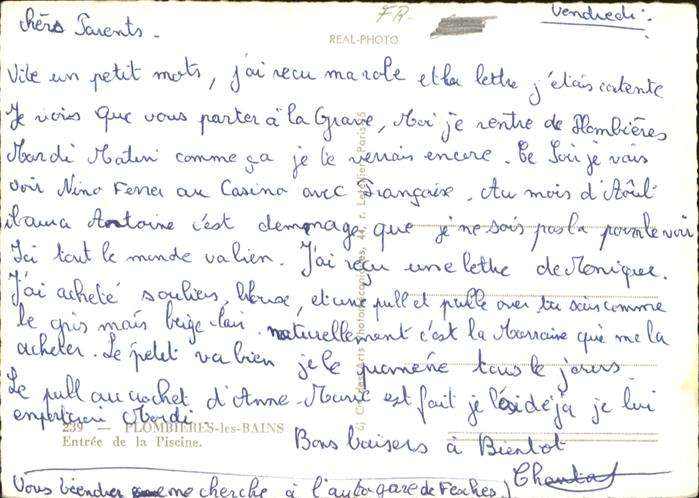 FR-
Vendredi.
chèrs Parents.
REAL-PHOTO
Vite un petit mots, j'ai recu ma robe et la lettre j'étais contente
Je vois que vous parter à la Grave, Moi je rentre de Plombières
Mardi Matin comme ça je le verrais encore. Ce Soir je vais
voir Nino Ferrer au Casino avec Françoise. Au mois d'Août
il aura Antoine c'est demmage que je ne sois pas la pour le voir
Ici tout le monde va bien. J'ai reçu une lettre de Monique.
J'ai acheté souliers, blouse, et une pull et pulle over tu sais comme
le gris mais beige clair. naturellement c'est la Marraine qui me la
acheter. Le petit va bien je le promène tous le jours.
Le pull au crochet d'Anne-Marie est fait je l'ai déjà je lui
emporterai Mardi.
239 - PLOMBIÈRES-les-BAINS
Entrée de la Piscine.
Bons baisers à Bientot
Vous viendrer me cherche à l'autogare de Fesches!
Chantal